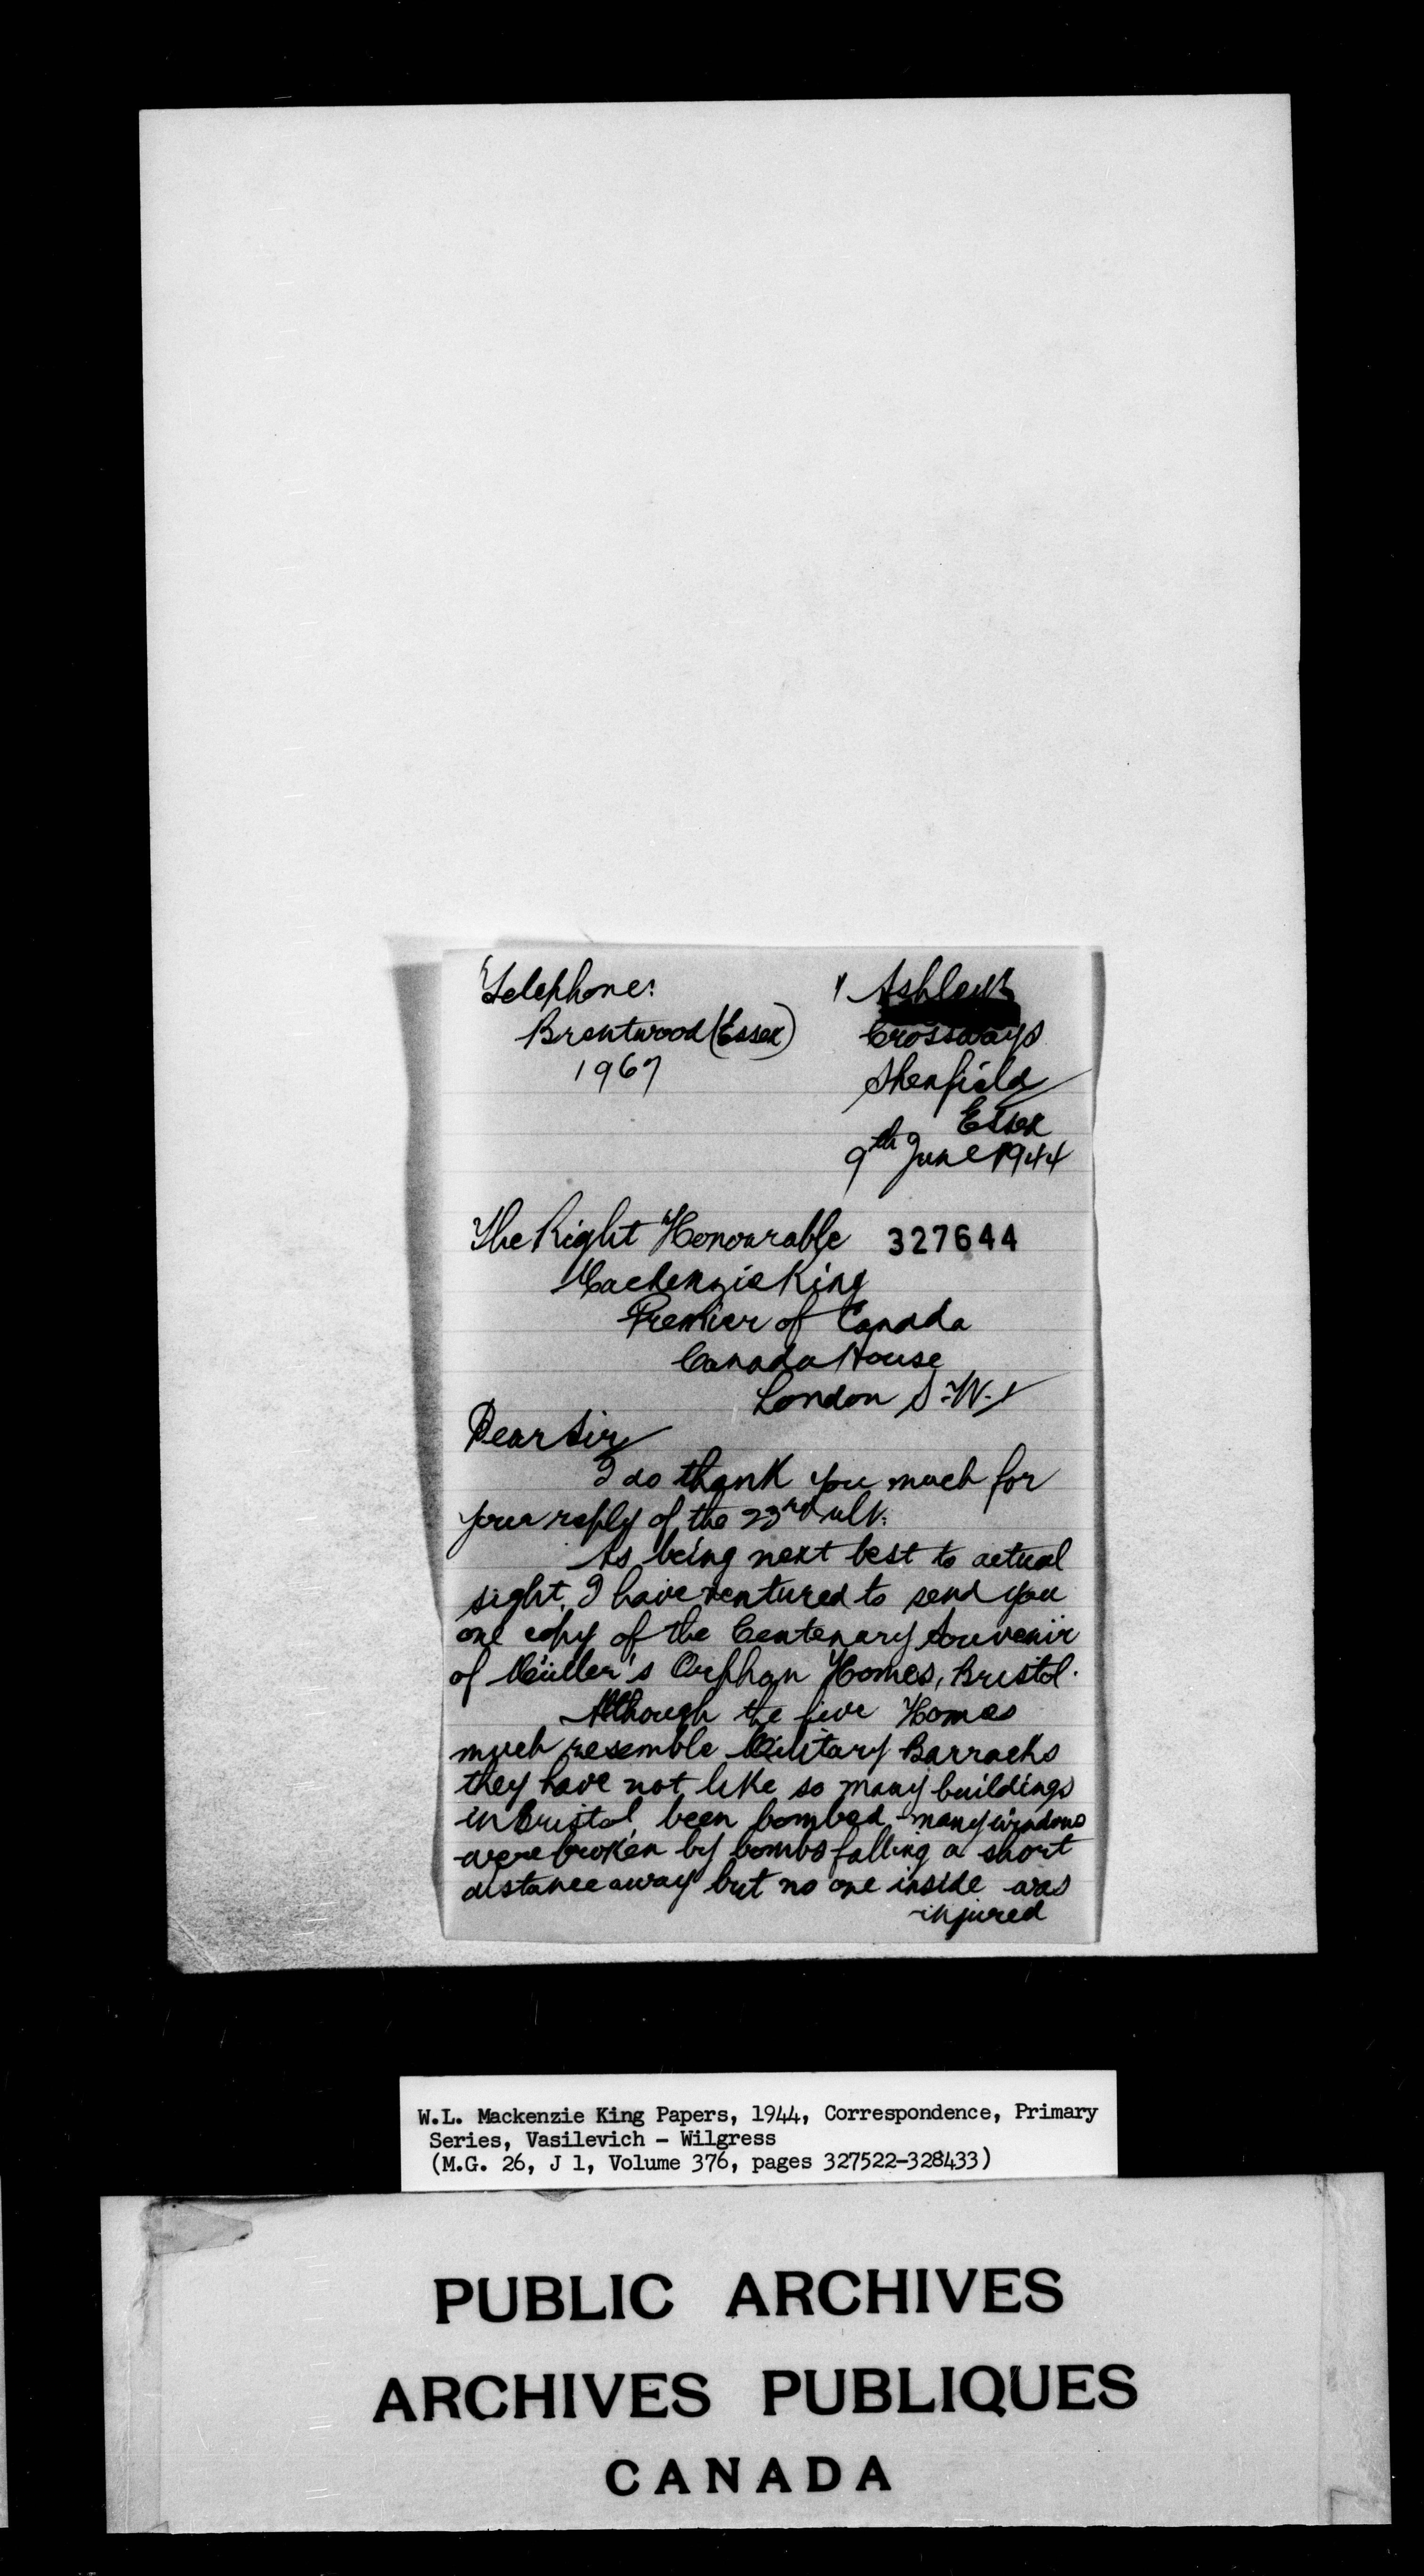 Telephone:
Brentwood (Essex)
1967
"Ashley"
Crossways
Shenfield
Essex
9th June 1944
The Right Honourable 327644
Mackenzie King
Premier of Canada
Canada House
London S.W.1
Dear Sir
I do thank you much for
your reply of the 23rd ult.
As being next best to actual
sight, I have ventured to send you
one copy of the Centenary Souvenir
of Müller's Orphan Homes, Bristol.
Although the five Homes
much resemble Military Barracks
they have not like so many buildings
in Bristol, been bombed - many windows
were broken by bombs falling a short
distance away but no one inside was
injured
W.L. Mackenzie King Papers, 1944, Correspondence, Primary
Series, Vasilevich - Wilgress
(M.G. 26, J 1, Volume 376, pages 327522-328433)
PUBLIC ARCHIVES
ARCHIVES PUBLIQUES
CANADA